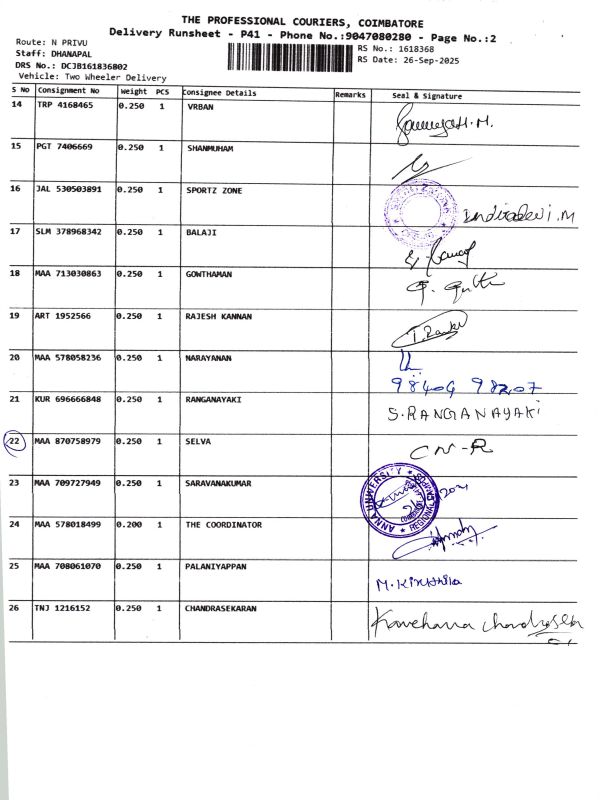 THE PROFESSIONAL COURIERS, COIMBATORE
Delivery Runsheet - P41 - Phone No.:9047080280 - Page No.:2
Route: N PRIVU
Staff: DHANAPAL
DRS No.: DCJB161836802
Vehicle: Two Wheeler Delivery
RS No.: 1618368
RS Date: 26-Sep-2025
S No Consignment No Weight PCS Consignee Details Remarks Seal & Signature
14 TRP 4168465 0.250 1 VRBAN
15 PGT 7406669 0.250 1 SHANMUHAM
16 JAL 530503891 0.250 1 SPORTZ ZONE Indiradevi.M
17 SLM 378968342 0.250 1 BALAJI
18 MAA 713030863 0.250 1 GOWTHAMAN
19 ART 1952566 0.250 1 RAJESH KANNAN
20 MAA 578058236 0.250 1 NARAYANAN
98404 98207
21 KUR 696666848 0.250 1 RANGANAYAKI S.RANGANAYAKI
22 MAA 870758979 0.250 1 SELVA CN-R
23 MAA 709727949 0.250 1 SARAVANAKUMAR ANNA UNIVERSITY REGIONAL CAMPUS
24 MAA 578018499 0.200 1 THE COORDINATOR
25 MAA 708061070 0.250 1 PALANIYAPPAN M.Kirthika
26 TNJ 1216152 0.250 1 CHANDRASEKARAN